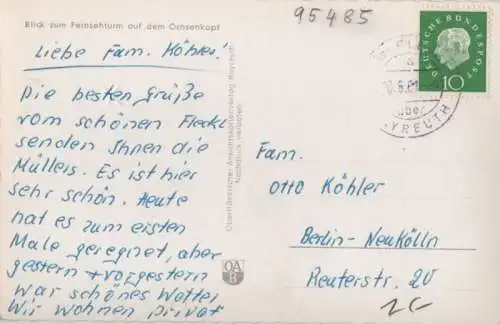 Blick zum Fernsehturm auf dem Ochsenkopf
95485
Liebe Fam. Köhler!
Die besten Grüße
vom schönen Fleckl
senden Ihnen die
Müllers. Es ist hier
sehr schön. Heute
hat es zum ersten
Male geregnet, aber
gestern + vorgestern
war schönes Wetter
Wir wohnen privat
Oberfränkischer Ansichtskartenverlag Bayreuth
Nachdruck verboten
OAB
DEUTSCHE BUNDESPOST
10
über
BAYREUTH
Fam.
Otto Köhler
Berlin-Neukölln
Reuterstr. 20